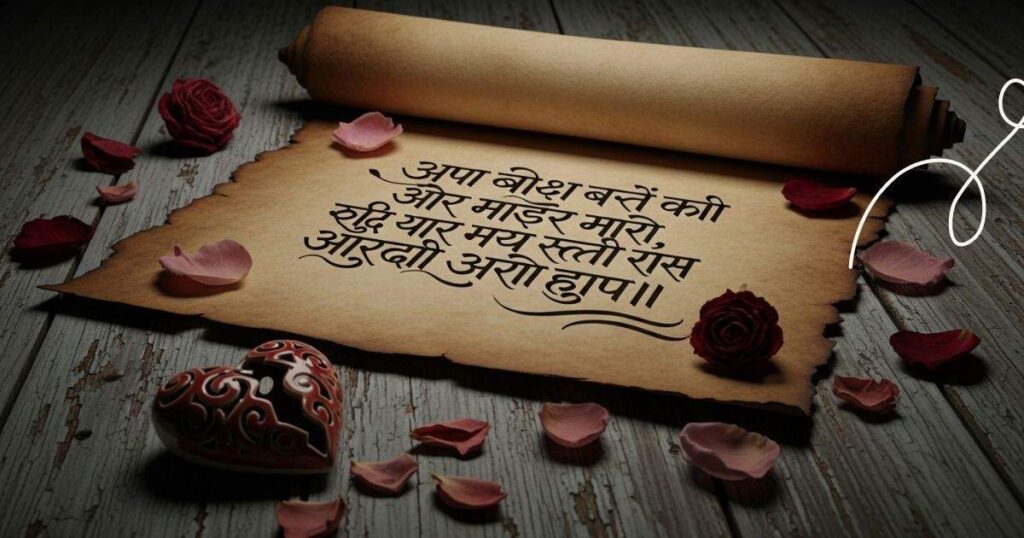 अपा बीक्ष बत्तें काी
ओर माइर मारो,
रुद्दि यार मय स्त्ती रास
आरदाी अराो ह्याप॥